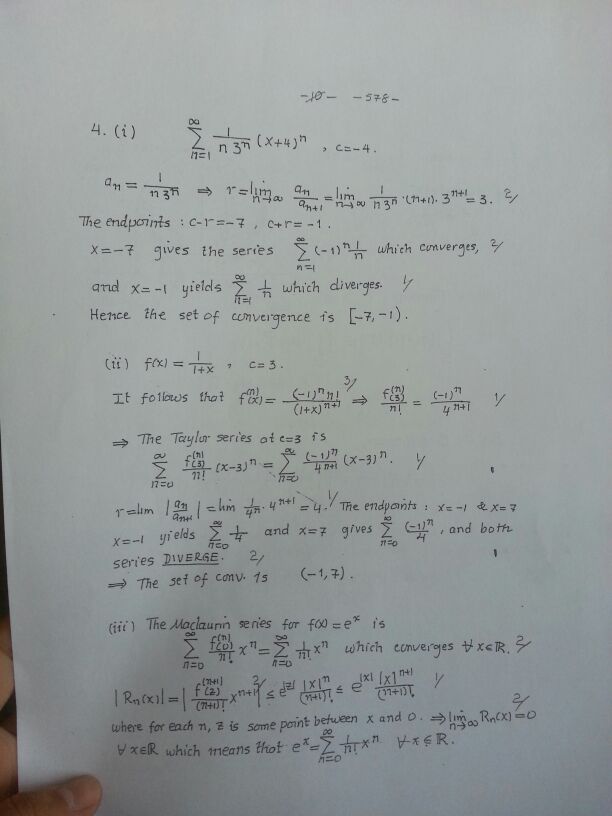 -10- -578-
4. (i) ∞∑n=1 1/(n 3^n) (x+4)^n , c=-4.
a_n = 1/(n 3^n) ⇒ r = lim n→∞ a_n/a_{n+1} = lim n→∞ 1/(n 3^n) · (n+1) · 3^{n+1} = 3. 2/
The endpoints : c-r=-7 , c+r=-1.
x=-7 gives the series ∞∑n=1 (-1)^n 1/n which converges, 2/
and x=-1 yields ∞∑n=1 1/n which diverges. 1/
Hence the set of convergence is [-7,-1).
(ii) f(x) = 1/(1+x) , c=3.
It follows that f^(n)(x) = (-1)^n n!/(1+x)^{n+1} 3/ ⇒ f^(n)(3)/n! = (-1)^n/4^{n+1} 1/
⇒ The Taylor series at c=3 is
∞∑n=0 f^(n)(3)/n! (x-3)^n = ∞∑n=0 (-1)^n/4^{n+1} (x-3)^n. 1/
r=lim |a_n/a_{n+1}| = lim 1/4^n · 4^{n+1} = 4. 1/ The endpoints : x=-1 & x=7
x=-1 yields ∞∑n=0 1/4 and x=7 gives ∞∑n=0 (-1)^n/4 , and both
series DIVERGE. 2/
⇒ The set of conv. is (-1,7).
(iii) The Maclaurin series for f(x)=e^x is
∞∑n=0 f^(n)(0)/n! x^n = ∞∑n=0 1/n! x^n which converges ∀x∈ℝ. 2/
|R_n(x)| = |f^(n+1)(z)/(n+1)! x^{n+1}| 2/ ≤ e^|z| |x|^n/(n+1)! ≤ e^|x| |x|^{n+1}/(n+1)! 1/
where for each n, z is some point between x and 0. ⇒ lim n→∞ R_n(x)=0 2/
∀x∈ℝ which means that e^x = ∞∑n=0 1/n! x^n ∀x∈ℝ.